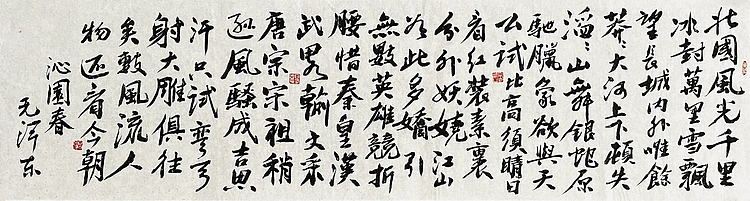 北國風光千里
冰封萬里雪飄
望長城內外唯餘
莽々大河上下頓失
滔々山舞銀蛇原
馳臘象欲與天
公試比高須晴日
看紅裝素裹
分外妖嬈江山
如此多嬌引
無數英雄競折
腰惜秦皇漢
武畧輸文采
唐宗宋祖稍
遜風騷成吉思
汗只試彎弓
射大雕俱往
矣數風流人
物還看今朝
沁園春
毛澤东